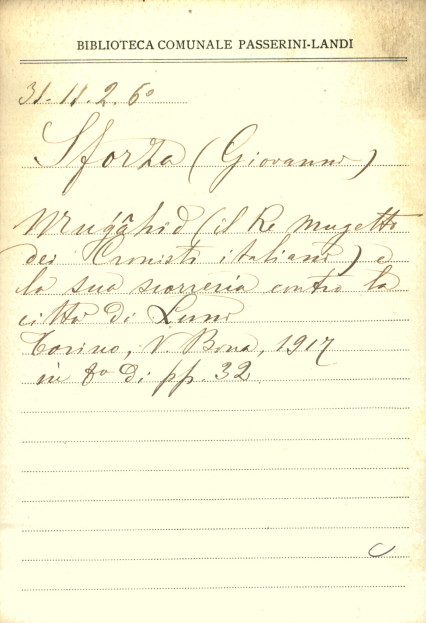 BIBLIOTECA COMUNALE PASSERINI-LANDI
31.11.2.6°
Sforza (Giovanni)
Mugâhid (il Re mugetto
dei Cronisti italiani) e
la sua scorreria contro la
città di Luni
Torino, V Bona, 1917
in 8° di pp. 32
C